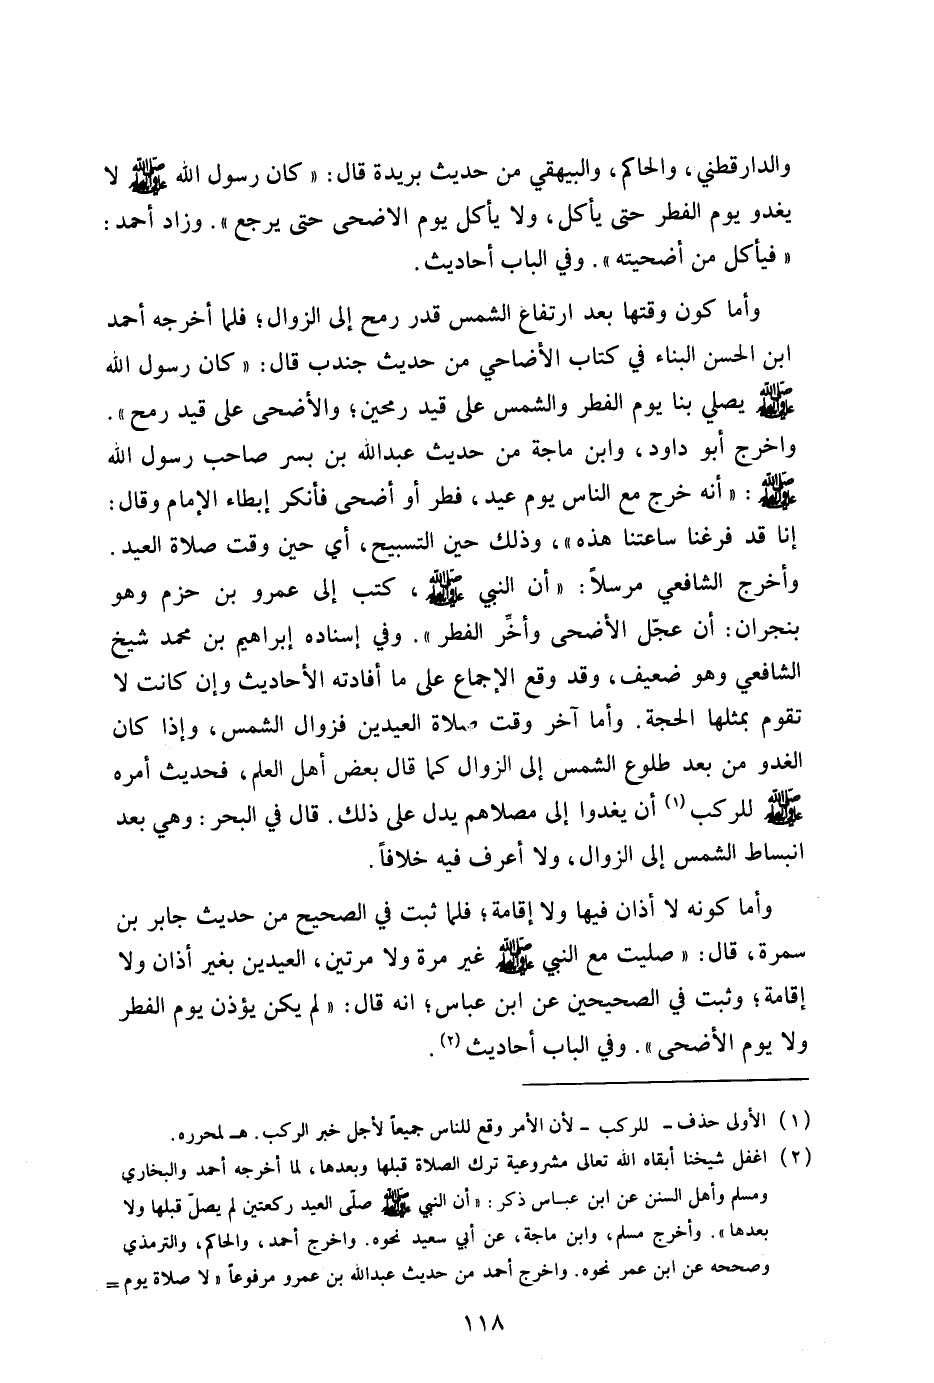 والدارقطني، والحاكم، والبيهقي من حديث بريدة قال: « كان رسول الله ﷺ لا
يغدو يوم الفطر حتى يأكل، ولا يأكل يوم الاضحى حتى يرجع ». وزاد أحمد:
« فيأكل من أضحيته ». وفي الباب أحاديث.
وأما كون وقتها بعد ارتفاع الشمس قدر رمح إلى الزوال؛ فلما أخرجه أحمد
ابن الحسن البناء في كتاب الأضاحي من حديث جندب قال: « كان رسول الله
ﷺ يصلي بنا يوم الفطر والشمس على قيد رمحين؛ والأضحى على قيد رمح ».
واخرج أبو داود، وابن ماجة من حديث عبدالله بن بسر صاحب رسول الله
ﷺ : « أنه خرج مع الناس يوم عيد، فطر أو أضحى فأنكر إبطاء الإمام وقال:
إنا قد فرغنا ساعتنا هذه»، وذلك حين التسبيح، أي حين وقت صلاة العيد.
وأخرج الشافعي مرسلاً: « أن النبي ﷺ، كتب إلى عمرو بن حزم وهو
بنجران: أن عجّل الأضحى وأخِّر الفطر ». وفي إسناده إبراهيم بن محمد شيخ
الشافعي وهو ضعيف، وقد وقع الإجماع على ما أفادته الأحاديث وإن كانت لا
تقوم بمثلها الحجة. وأما آخر وقت صلاة العيدين فزوال الشمس، وإذا كان
الغدو من بعد طلوع الشمس إلى الزوال كما قال بعض أهل العلم، فحديث أمره
ﷺ للركب (١) أن يغدوا إلى مصلاهم يدل على ذلك. قال في البحر: وهي بعد
انبساط الشمس إلى الزوال، ولا أعرف فيه خلافاً.
وأما كونه لا أذان فيها ولا إقامة؛ فلما ثبت في الصحيح من حديث جابر بن
سمرة، قال: « صليت مع النبي ﷺ غير مرة ولا مرتين، العيدين بغير أذان ولا
إقامة؛ وثبت في الصحيحين عن ابن عباس؛ انه قال: « لم يكن يؤذن يوم الفطر
ولا يوم الأضحى ». وفي الباب أحاديث (٢).
(١) الأولى حذف - للركب - لأن الأمر وقع للناس جميعاً لأجل خبر الركب. هـ لمحرره.
(٢) اغفل شيخنا أبقاه الله تعالى مشروعية ترك الصلاة قبلها وبعدها، لما أخرجه أحمد والبخاري
ومسلم وأهل السنن عن ابن عباس ذكر: « أن النبي ﷺ صلّى العيد ركعتين لم يصلّ قبلها ولا
بعدها ». وأخرج مسلم، وابن ماجة، عن أبي سعيد نحوه. واخرج أحمد، والحاكم، والترمذي
وصححه عن ابن عمر نحوه. واخرج أحمد من حديث عبدالله بن عمرو مرفوعاً « لا صلاة يوم =
١١٨